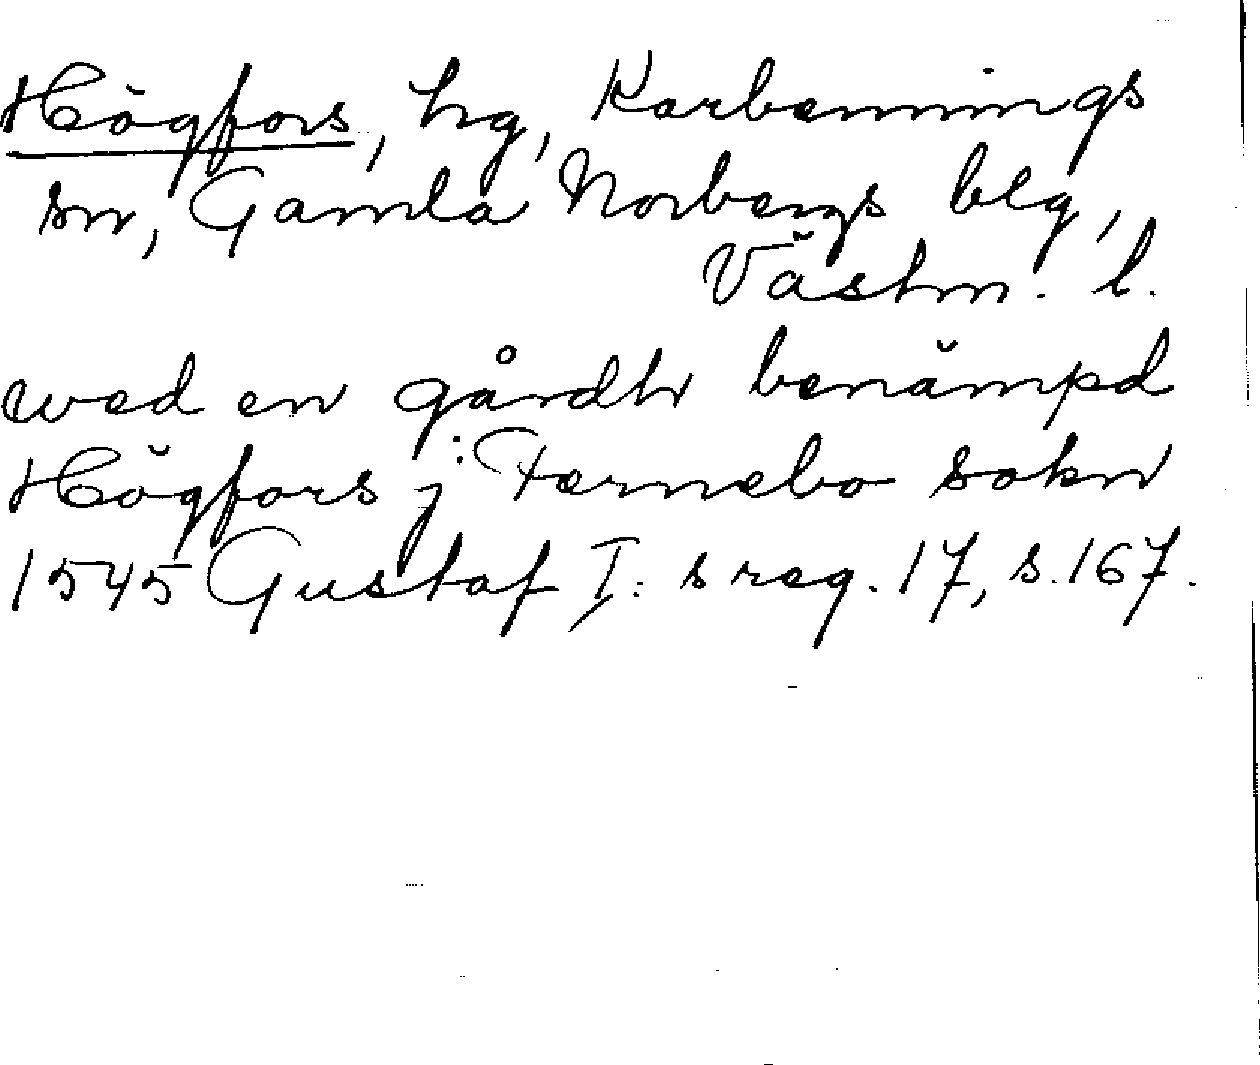 Högfors, hg, Karbennings
sn, Gamla Norbergs blg,
Västm. l.
wed en gårdh benämpd
Högfors j Fernebo sokn
1545 Gustaf I:s reg. 17, s. 167.